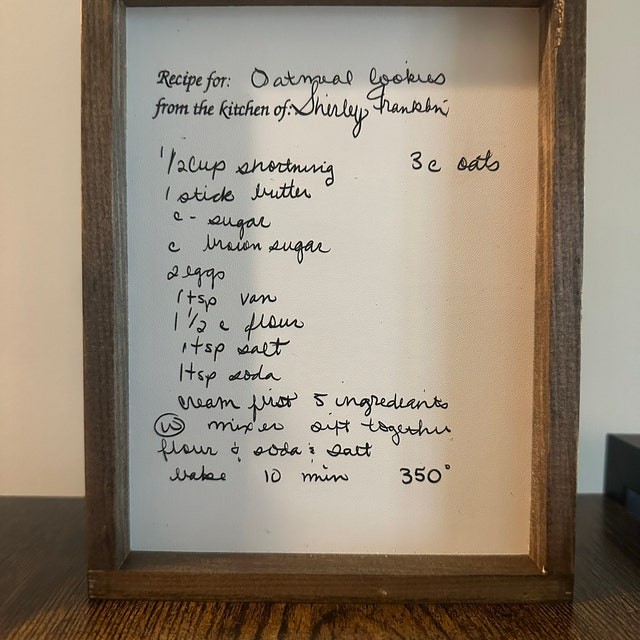 Recipe for: Oatmeal Cookies
from the kitchen of: Shirley Franklin
1/2 cup shortning 3 c oats
1 stick butter
c - sugar
c brown sugar
2 eggs
1 tsp van
1 1/2 c flour
1 tsp salt
1 tsp soda
cream first 5 ingrediants
w mixer sift together
flour & soda & salt
bake 10 min 350°